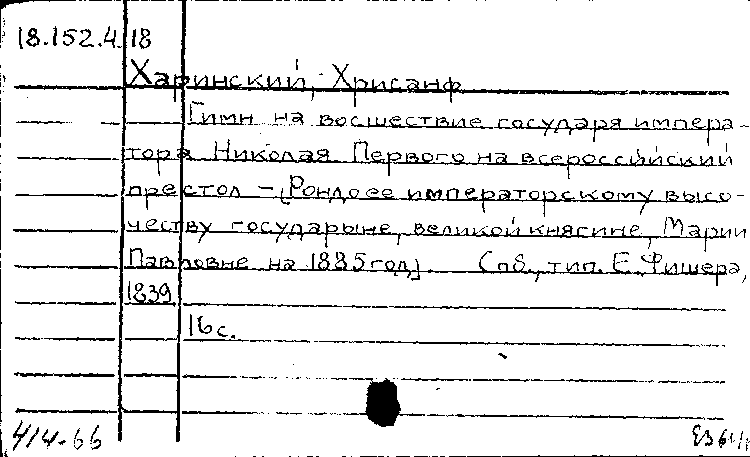 18.152.4.18
Харинский, Хрисанф
Гимн на восшествие государя импера-
тора Николая Первого на всероссийский
престол – [Рондо ее императорскому высо-
честву государыне, великой княгине, Марии
Павловне на 1835 год]. Спб., тип. Е. Фишера,
1839
16 с.
414-66